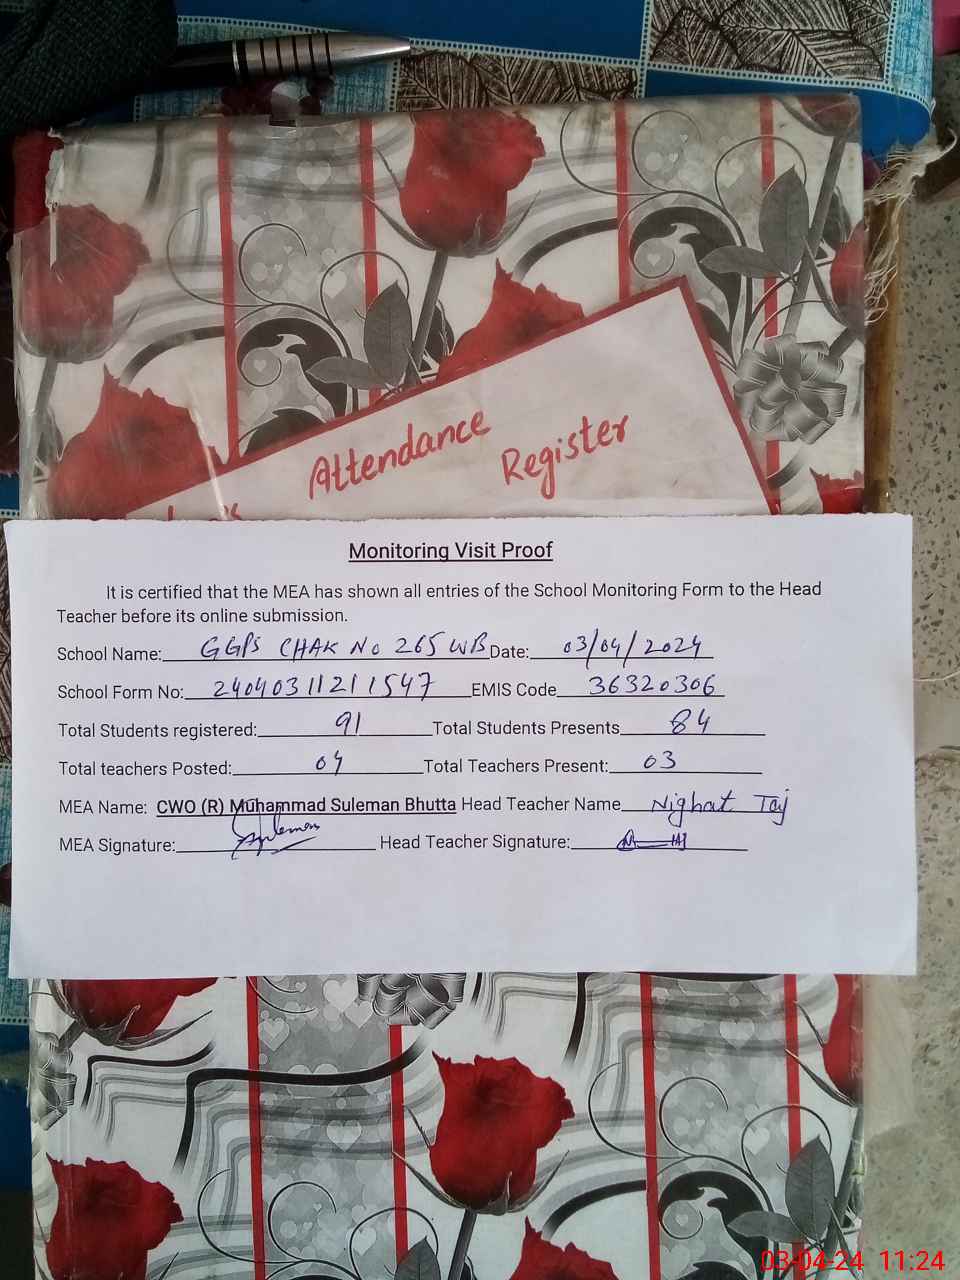 Attendance
Register
Monitoring Visit Proof
It is certified that the MEA has shown all entries of the School Monitoring Form to the Head
Teacher before its online submission.
School Name: GGPS CHAK No 265 WB Date: 03/04/2024
School Form No: 24040311211547 EMIS Code 36320306
Total Students registered: 91 Total Students Presents 84
Total teachers Posted: 04 Total Teachers Present: 03
MEA Name: CWO (R) Muhammad Suleman Bhutta Head Teacher Name Nighat Taj
MEA Signature: Suleman Head Teacher Signature:
03-04-24 11:24